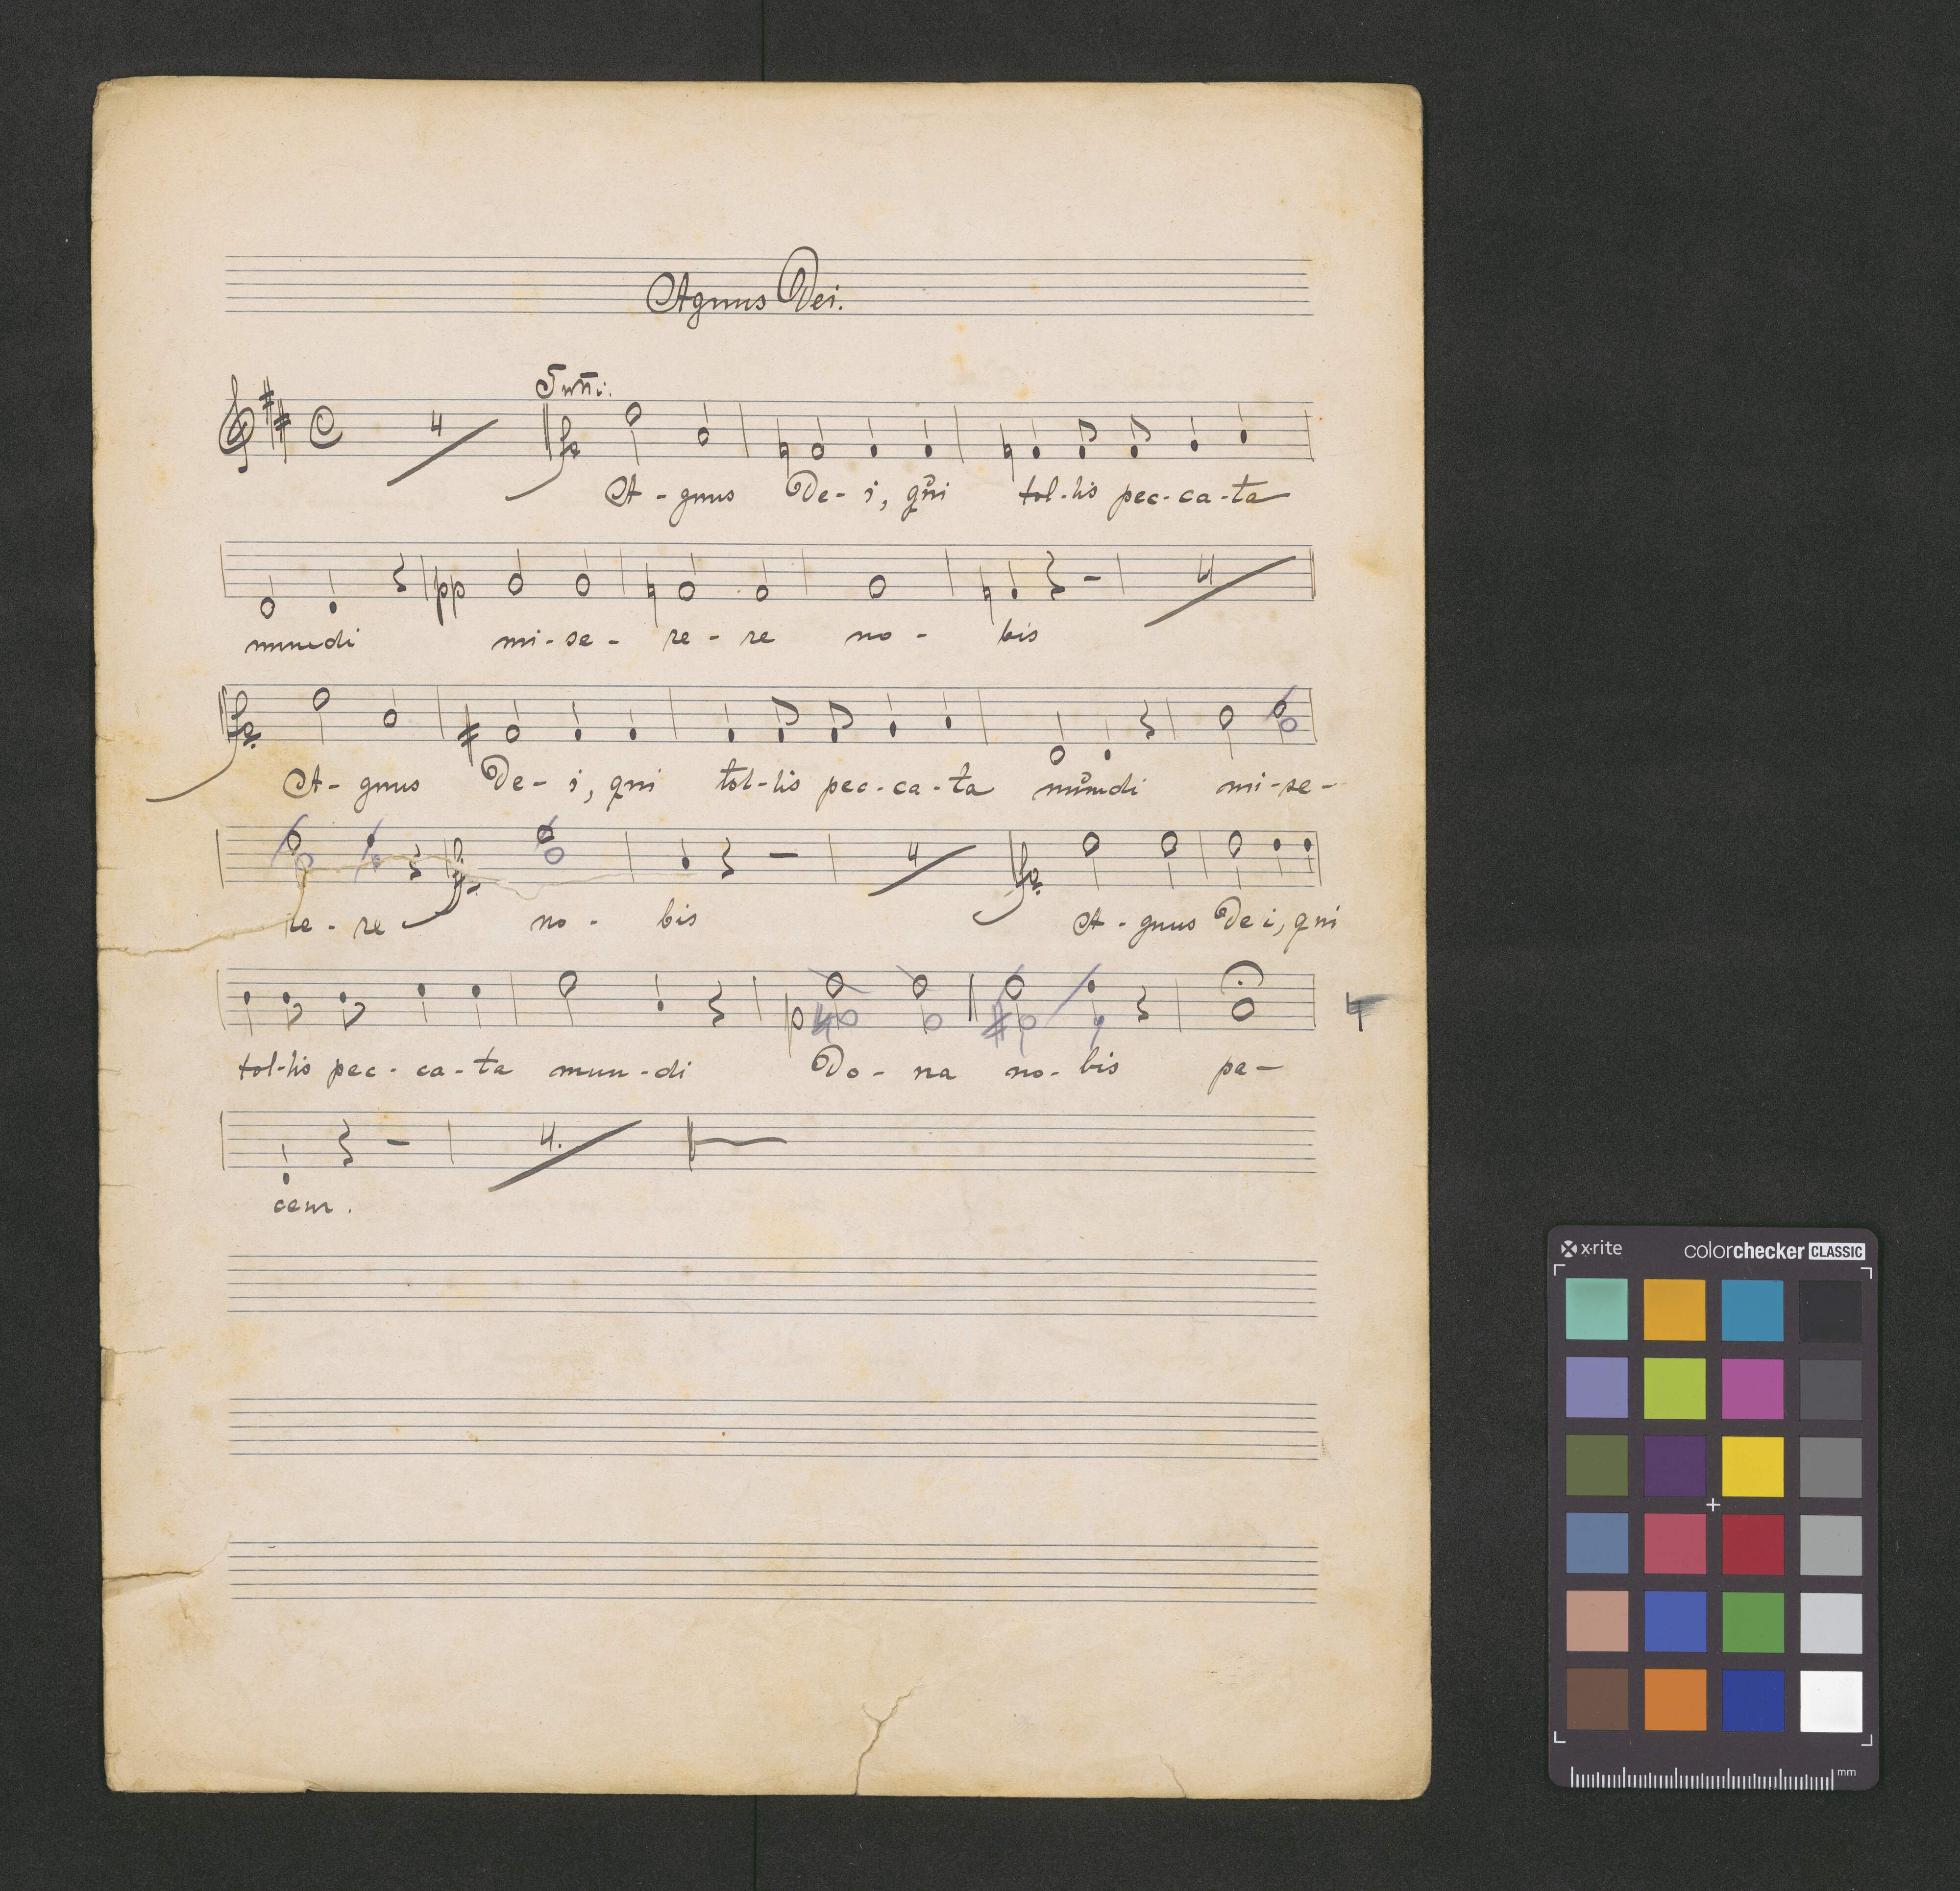 Agnus Dei.
4 Tutti.
A - gnus De - i, qui tol - lis pec - ca - ta
pp 4
mundi mi - se - re - re no - bis
A - gnus De - i, qui tol - lis pec - ca - ta mundi mi - se -
4
re - re no - bis A - gnus De i, qui
p
tol - lis pec - ca - ta mun - di Do - na no - bis pa -
4.
cem.
x·rite colorchecker CLASSIC
mm